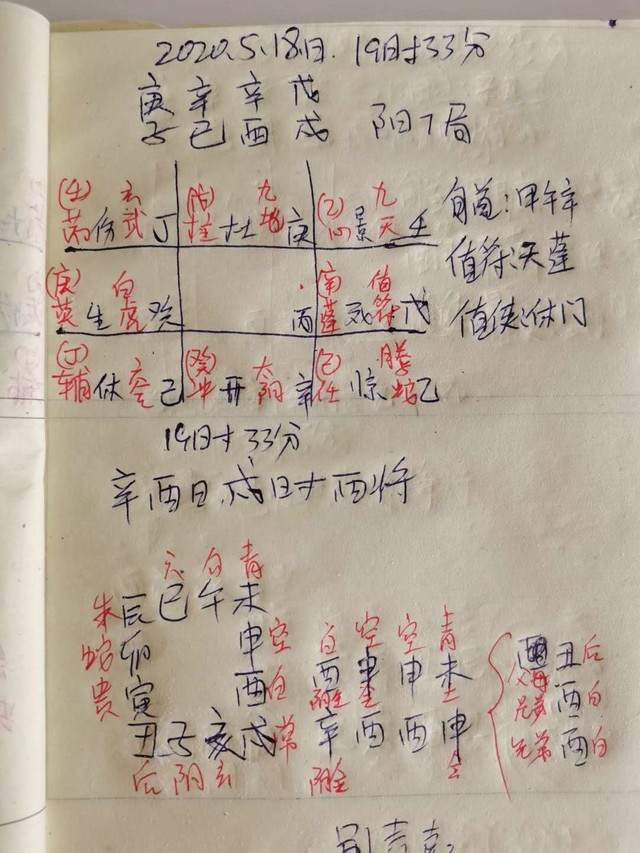 2020.5.18日. 19时33分
庚 辛 辛 戊
子 巳 酉 戌 阳7局
(壬) 玄武 九地 (乙) 九天
芮 伤 丁 柱 杜 庚 心 景 壬
旬首:甲午辛
值符:天蓬
值使:休门
(庚) 白虎 值符
英 生 癸 丙 蓬 死 戊
(丁) (癸) 太阴 (己) 腾蛇
辅 休 六合 己 冲 开 辛 任 惊 乙
19时33分
辛酉日 戌时 酉将
六 白 青
朱 辰 巳 午 未
蛇 卯 申 空
贵 寅 酉 白
丑 子 亥 戌 常
后 阴 玄
白 空 空 青
酉 申 申 未
辛 酉 酉 申
父母 丑 后
兄弟 酉 白
兄弟 酉 白